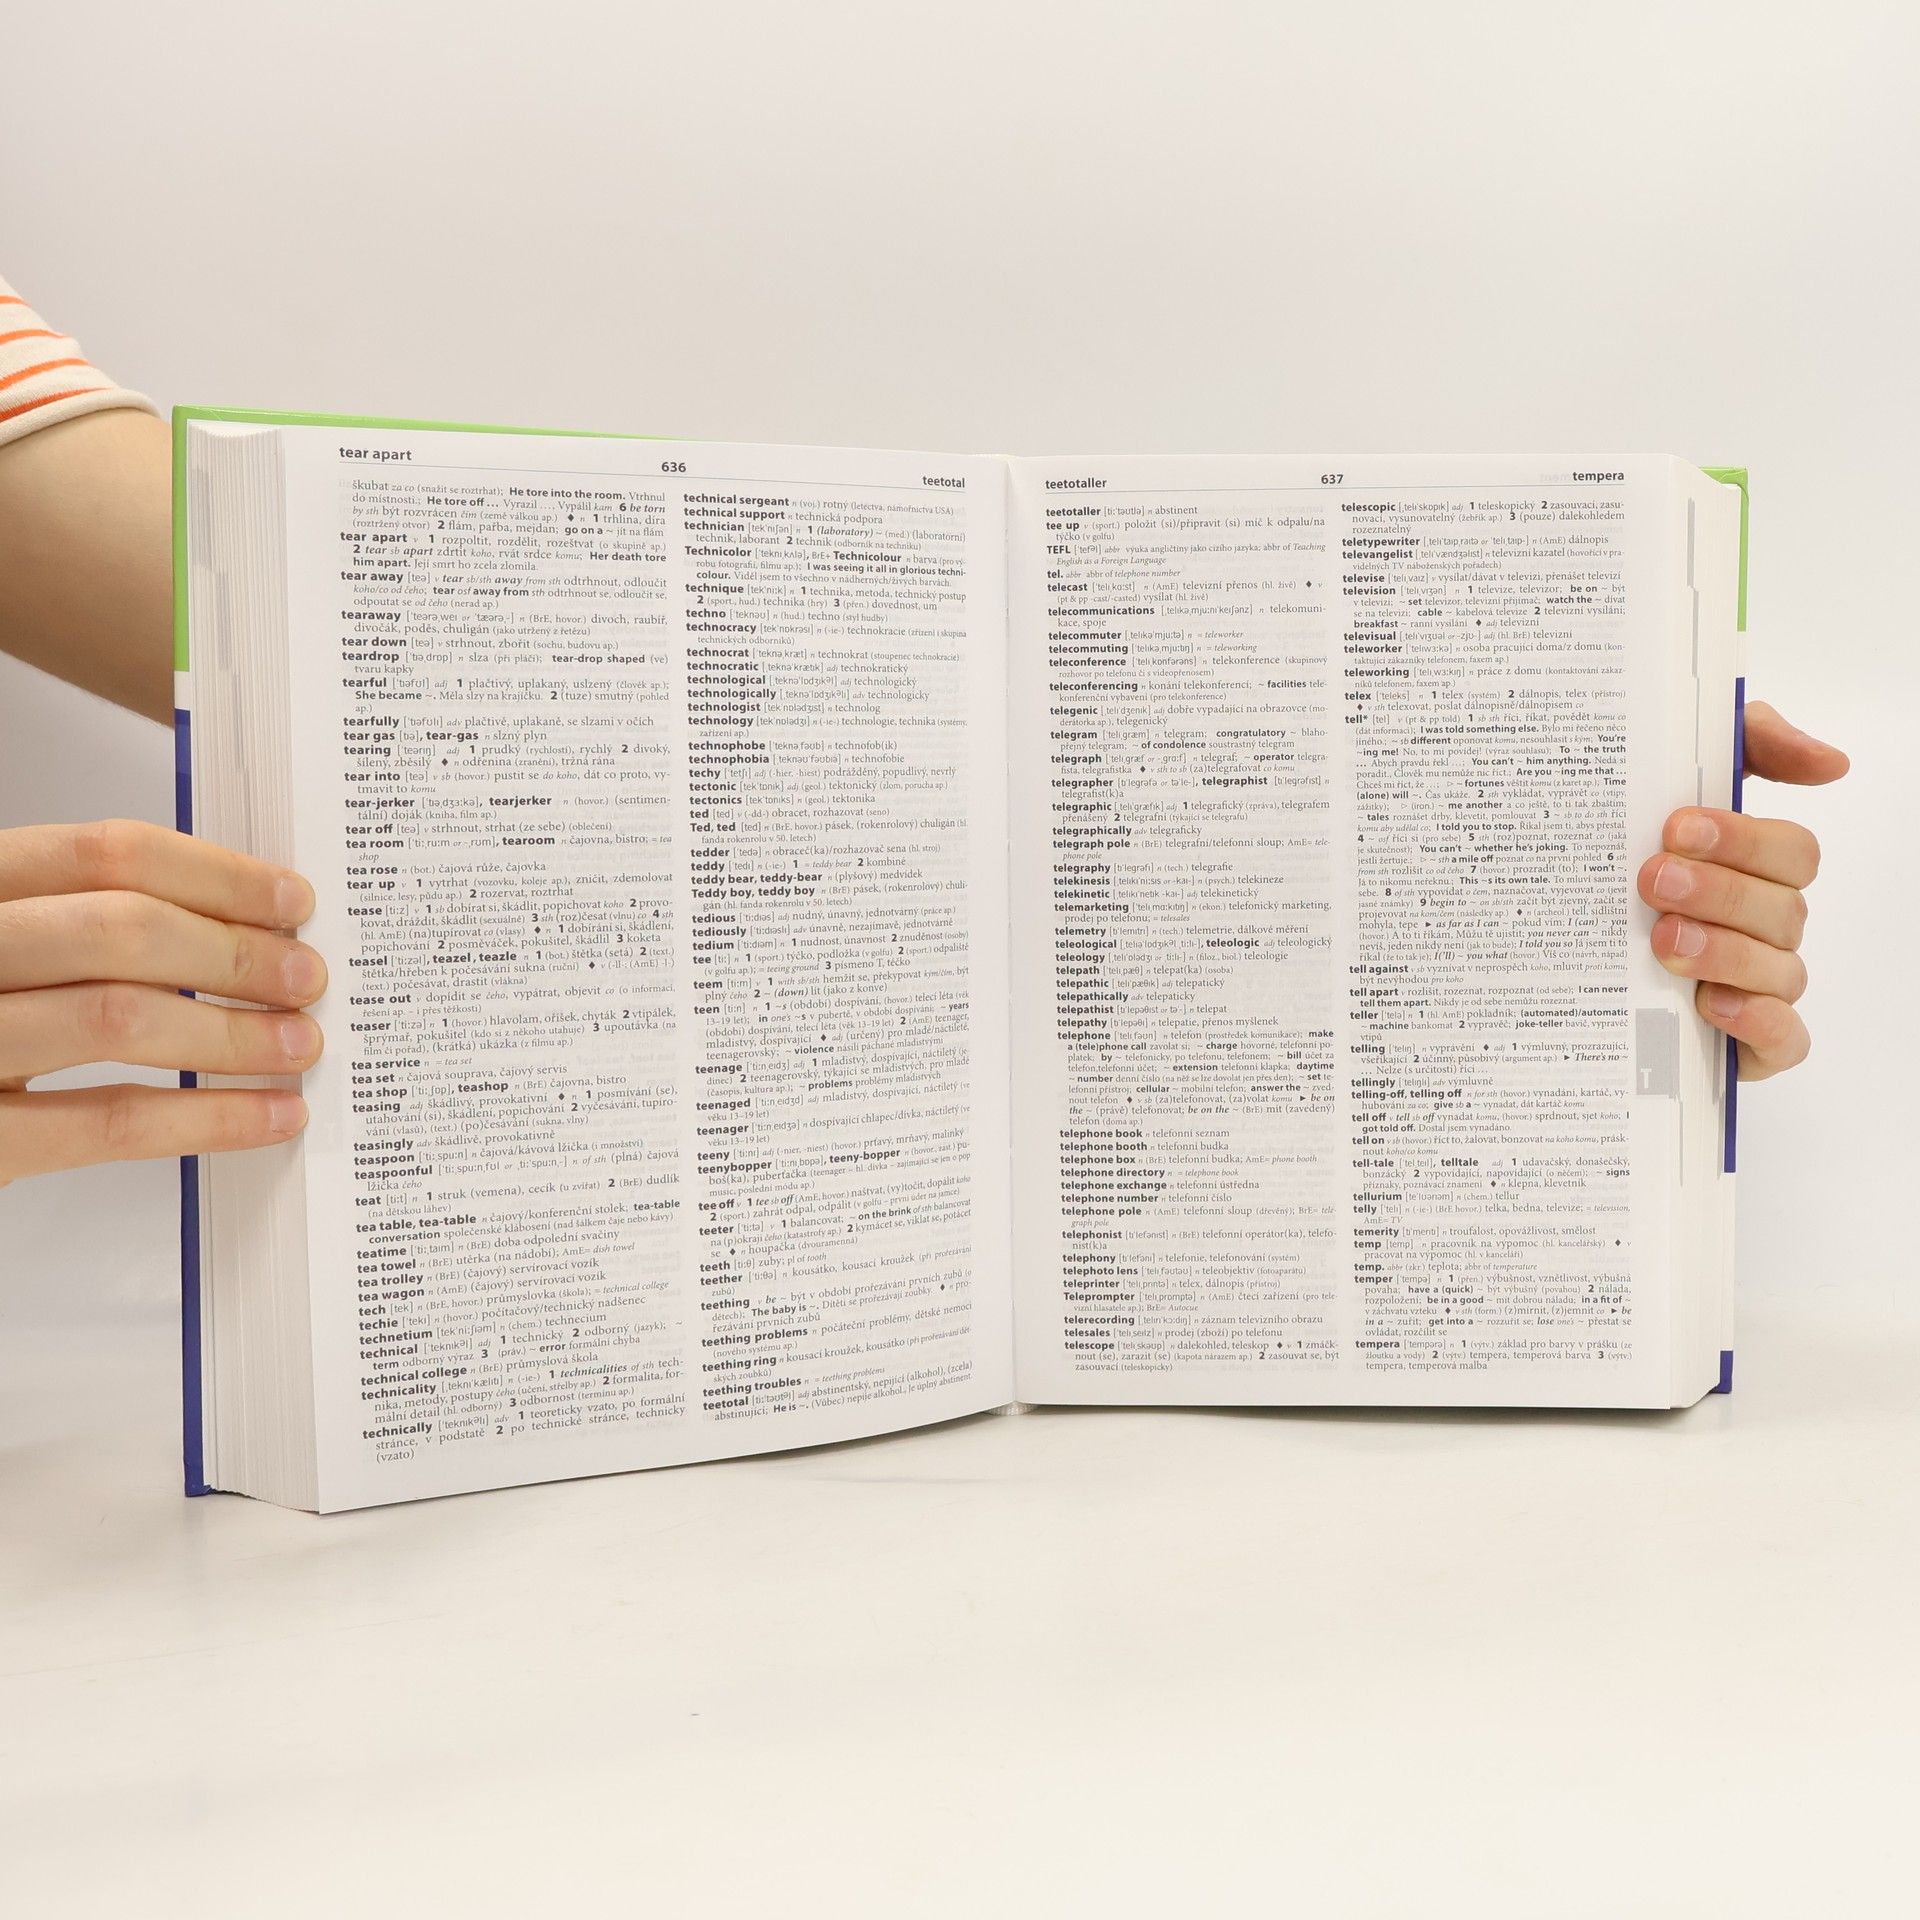 tear apart
636
teetotal
škubat za co (snažit se roztrhat); He tore into the room. Vtrhnul
do místnosti.; He tore off ... Vyrazil .... Vypálil kam 6 be torn
by sth být rozvrácen čím (země válkou ap.) ♦ n 1 trhlina, díra
(roztržený otvor) 2 flám, pařba, mejdan; go on a ~ jít na flám
tear apart v 1 rozpoltit, rozdělit, rozeštvat (o skupině ap.)
2 tear sb apart zdrtit koho, rvát srdce komu; Her death tore
him apart. Její smrt ho zcela zlomila.
tear away [teə] v tear sb/sth away from sth odtrhnout, odloučit
koho/co od čeho; tear osf away from sth odtrhnout se, odloučit se,
odpoutat se od čeho (nerad ap.)
divočák, poděs, chuligán (jako utržený z řetězu)
tear down [teə] v strhnout, zbořit (sochu, budovu ap.)
tvaru kapky
She became ~. Měla slzy na krajíčku. 2 (tuze) smutný (pohled
ap.)
tear gas [tɪə], tear-gas n slzný plyn
šílený, zběsilý ♦ n odřenina (zranění), tržná rána
tear into [teə] v sb (hovor.) pustit se do koho, dát co proto, vy-
tmavit to komu
tální) doják (kniha, film ap.)
tear off [teə] v strhnout, strhat (ze sebe) (oblečení)
shop
tea rose n (bot.) čajová růže, čajovka
tear up v 1 vytrhat (vozovku, koleje ap.), zničit, zdemolovat
(silnice, lesy, půdu ap.) 2 rozervat, roztrhat
tease [ti:z] v 1 sb dobírat si, škádlit, popichovat koho 2 provo-
kovat, dráždit, škádlit (sexuálně) 3 sth (roz)česat (vlnu) co 4 sth
(hl. AmE) (na)tupírovat co (vlasy) ♦ n 1 dobírání si, škádlení,
popichování 2 posměváček, pokušitel, škádlil 3 koketa
štětka/hřeben k počesávání sukna (ruční) ♦ v (-ll-; (AmE) -l-)
(text.) počesávat, drastit (vlákna)
tease out v dopídit se čeho, vypátrat, objevit co (o informaci,
řešení ap. – i přes těžkosti)
teaser [ˈti:zə] n 1 (hovor.) hlavolam, oříšek, chyták 2 vtipálek,
šprýmař, pokušitel (kdo si z někoho utahuje) 3 upoutávka (na
film či pořad), (krátká) ukázka (z filmu ap.)
tea service n = tea set
tea set n čajová souprava, čajový servis
tea shop [ˈti:ʃɒp], teashop n (BrE) čajovna, bistro
teasing adj škádlivý, provokativní ♦ n 1 posmívání (se),
utahování (si), škádlení, popichování 2 vyčesávání, tupíro-
vání (vlasů), (text.) (po)česávání (sukna, vlny)
teasingly adv škádlivě, provokativně
teaspoon [ˈti:spu:n] n čajová/kávová lžička (i množství)
lžička čeho
teat [ti:t] n 1 struk (vemena), cecík (u zvířat) 2 (BrE) dudlík
(na dětskou láhev)
tea table, tea-table n čajový/konferenční stolek; tea-table
conversation společenské klábosení (nad šálkem čaje nebo kávy)
teatime [ˈti:taɪm] n (BrE) doba odpolední svačiny
tea towel n (BrE) utěrka (na nádobí); AmE= dish towel
tea trolley n (BrE) (čajový) servírovací vozík
tea wagon n (AmE) (čajový) servírovací vozík
tech [tek] n (BrE, hovor.) průmyslovka (škola); = technical college
techie [ˈteki] n (hovor.) počítačový/technický nadšenec
technetium [tekˈni:ʃiəm] n (chem.) technecium
technical [ˈteknɪkəl] adj 1 technický 2 odborný (jazyk); ~
term odborný výraz 3 (práv.) ~ error formální chyba
technical college n (BrE) průmyslová škola
technicality [ˌteknɪˈkælɪti] n (-ie-) 1 technicalities of sth tech-
nika, metody, postupy čeho (učení, střelby ap.) 2 formalita, for-
mální detail (hl. odborný) 3 odbornost (termínu ap.)
technically [ˈteknɪkəli] adv 1 teoreticky vzato, po formální
stránce, v podstatě 2 po technické stránce, technicky
(vzato)
technical sergeant n (voj.) rotný (letectva, námořnictva USA)
technical support n technická podpora
technician [tekˈnɪʃən] n 1 (laboratory) ~ (med.) (laboratorní)
technik, laborant 2 technik (odborník na techniku)
robu fotografií, filmu ap.); I was seeing it all in glorious techni-
colour. Viděl jsem to všechno v nádherných/živých barvách.
technique [tekˈni:k] n 1 technika, metoda, technický postup
2 (sport., hud.) technika (hry) 3 (přen.) dovednost, um
techno [ˈteknəʊ] n (hud.) techno (styl hudby)
technických odborníků)
technologist [tekˈnɒlədʒɪst] n technolog
zařízení ap.)
techy [ˈtetʃi] adj (-hier, -hiest) podrážděný, popudlivý, nevrlý
tectonic [tekˈtɒnɪk] adj (geol.) tektonický (zlom, porucha ap.)
tectonics [tekˈtɒnɪks] n (geol.) tektonika
ted [ted] v (-dd-) obracet, rozhazovat (seno)
Ted, ted [ted] n (BrE, hovor.) pásek, (rokenrolový) chuligán (hl.
fanda rokenrolu v 50. letech)
tedder [ˈtedə] n obraceč(ka)/rozhazovač sena (hl. stroj)
teddy [ˈtedi] n (-ie-) 1 = teddy bear 2 kombiné
teddy bear, teddy-bear n (plyšový) medvídek
Teddy boy, teddy boy n (BrE) pásek, (rokenrolový) chuli-
gán (hl. fanda rokenrolu v 50. letech)
tedious [ˈti:diəs] adj nudný, únavný, jednotvárný (práce ap.)
tediously [ˈti:diəsli] adv únavně, nezajímavě, jednotvárně
tedium [ˈti:diəm] n 1 nudnost, únavnost 2 znuděnost (osoby)
tee [ti:] n 1 (sport.) týčko, podložka (v golfu) 2 (sport.) odpaliště
(v golfu ap.); = teeing ground 3 písmeno T, téčko
teem [ti:m] v 1 with sb/sth hemžit se, překypovat kým/čím, být
plný čeho 2 ~ (down) lít (jako z konve)
teen [ti:n] n 1 ~s (období) dospívání, (hovor.) telecí léta (věk
13–19 let); in one's ~s v pubertě, v období dospívání; ~ years
(období) dospívání, telecí léta (věk 13–19 let) 2 (AmE) teenager,
mladistvý, dospívající ♦ adj (určený) pro mladé/náctileté,
teenagerovský; ~ violence násilí páchané mladistvými
teenage [ˈti:neɪdʒ] adj 1 mladistvý, dospívající, náctiletý (je-
dinec) 2 teenagerovský, týkající se mladistvých, pro mladé
(časopis, kultura ap.); ~ problems problémy mladistvých
teenaged [ˈti:neɪdʒd] adj mladistvý, dospívající, náctiletý (ve
věku 13–19 let)
teenager [ˈti:neɪdʒə] n dospívající chlapec/dívka, náctiletý (ve
věku 13–19 let)
teeny [ˈti:ni] adj (-nier, -niest) (hovor.) prťavý, mrňavý, malinký
boš(ka), puberťačka (teenager – hl. dívka – zajímající se jen o pop
music, poslední módu ap.)
tee off v 1 tee sb off (AmE, hovor.) naštvat, (vy)točit, dopálit koho
2 (sport.) zahrát odpal, odpálit (v golfu – první úder na jamce)
teeter [ˈti:tə] v 1 balancovat; ~ on the brink of sth balancovat
na (p)okraji čeho (katastrofy ap.) 2 kymácet se, viklat se, potácet
se ♦ n houpačka (dvouramenná)
teeth [ti:θ] zuby; pl of tooth
teether [ˈti:ðə] n kousátko, kousací kroužek (při prořezávání
zubů)
teething v be ~ být v období prořezávání prvních zubů (o
dítěti); The baby is ~. Dítěti se prořezávají zoubky. ♦ n pro-
řezávání prvních zubů
teething problems n počáteční problémy, dětské nemoci
(nového systému ap.)
teething ring n kousací kroužek, kousátko (při prořezávání dět-
ských zoubků)
teething troubles n = teething problems
teetotal [ti:ˈtəʊtəl] adj abstinentský, nepijící (alkohol), (zcela)
abstinující; He is ~. (Vůbec) nepije alkohol., Je úplný abstinent.
teetotaller
637
tempera
teetotaller [ti:ˈtəʊtlə] n abstinent
tee up v (sport.) položit (si)/připravit (si) míč k odpalu/na
týčko (v golfu)
TEFL [ˈtefəl] abbr výuka angličtiny jako cizího jazyka; abbr of Teaching
English as a Foreign Language
tel. abbr abbr of telephone number
telecast [ˈtelikɑ:st] n (AmE) televizní přenos (hl. živě) ♦ v
(pt & pp -cast/-casted) vysílat (hl. živě)
kace, spoje
rozhovor po telefonu či s videopřenosem)
teleconferencing n konání telekonferencí; ~ facilities tele-
konferenční vybavení (pro telekonference)
derátorka ap.), telegenický
telegram [ˈteligræm] n telegram; congratulatory ~ blaho-
přejný telegram, ~ of condolence soustrastný telegram
fista, telegrafistka ♦ v sth to sb (za)telegrafovat co komu
telegrafist(k)a
telegraphic [ˌteliˈgræfɪk] adj 1 telegrafický (zpráva), telegrafem
přenášený 2 telegrafní (týkající se telegrafu)
telegraphically adv telegraficky
telegraph pole n (BrE) telegrafní/telefonní sloup; AmE= tele-
phone pole
telegraphy [tɪˈlegrəfi] n (tech.) telegrafie
prodej po telefonu; = telesales
telemetry [tɪˈlemɪtri] n (tech.) telemetrie, dálkové měření
telepath [ˈtelipæθ] n telepat(ka) (osoba)
telepathic [ˌteliˈpæθɪk] adj telepatický
telepathically adv telepaticky
telepathy [tɪˈlepəθi] n telepatie, přenos myšlenek
telephone [ˈtelifəʊn] n telefon (prostředek komunikace); make
a (tele)phone call zavolat si; ~ charge hovorné, telefonní po-
platek; by ~ telefonicky, po telefonu, telefonem; ~ bill účet za
telefon,telefonní účet; ~ extension telefonní klapka; daytime
~ number denní číslo (na něž se lze dovolat jen přes den); ~ set te-
lefonní přístroj; cellular ~ mobilní telefon; answer the ~ zved-
nout telefon ♦ v sb (za)telefonovat, (za)volat komu ► be on
the ~ (právě) telefonovat; be on the ~ (BrE) mít (zavedený)
telefon (doma ap.)
telephone book n telefonní seznam
telephone booth n telefonní budka
telephone box n (BrE) telefonní budka; AmE= phone booth
telephone directory n = telephone book
telephone exchange n telefonní ústředna
telephone number n telefonní číslo
telephone pole n (AmE) telefonní sloup (dřevěný); BrE= tele-
graph pole
nist(k)a
telephony [tɪˈlefəni] n telefonie, telefonování (systém)
telephoto lens [ˌtelifəʊtəʊ] n teleobjektiv (fotoaparátu)
teleprinter [ˈteliprɪntə] n telex, dálnopis (přístroj)
Teleprompter [ˈteliprɒmptə] n (AmE) čtecí zařízení (pro tele-
vizní hlasatele ap.); BrE= Autocue
telesales [ˈteliseɪlz] n prodej (zboží) po telefonu
telescope [ˈteliskəʊp] n dalekohled, teleskop ♦ v 1 zmáčk-
nout (se), zarazit (se) (kapota nárazem ap.) 2 zasouvat se, být
zasouvací (teleskopicky)
telescopic [ˌteliˈskɒpɪk] adj 1 teleskopický 2 zasouvací, zasu-
novací, vysunovatelný (žebřík ap.) 3 (pouze) dalekohledem
rozeznatelný
televangelist [ˌteliˈvændʒəlɪst] n televizní kazatel (hovořící v pra-
videlných TV náboženských pořadech)
televise [ˈtelivaɪz] v vysílat/dávat v televizi, přenášet televizí
television [ˈteliˌvɪʒən] n 1 televize, televizor; be on ~ být
v televizi; ~ set televizor, televizní přijímač; watch the ~ dívat
se na televizi; cable ~ kabelová televize 2 televizní vysílání;
breakfast ~ ranní vysílání ♦ adj televizní
teleworker [ˈteliwɜ:kə] n osoba pracující doma/z domu (kon-
taktující zákazníky telefonem, faxem ap.)
teleworking [ˈteliˌwɜ:kɪŋ] n práce z domu (kontaktování zákaz-
níků telefonem, faxem ap.)
telex [ˈteleks] n 1 telex (systém) 2 dálnopis, telex (přístroj)
♦ v sth telexovat, poslat dálnopisně/dálnopisem co
tell* [tel] v (pt & pp told) 1 sb sth říci, říkat, povědět komu co
(dát informaci); I was told something else. Bylo mi řečeno něco
jiného.; ~ sb different oponovat komu, nesouhlasit s kým; You're
~ing me! No, to mi povídej! (výraz souhlasu); To ~ the truth
... Abych pravdu řekl ...; You can't ~ him anything. Nedá si
poradit., Člověk mu nemůže nic říct.; Are you ~ing me that ...
Chceš mi říct, že ...; ▷ ~ fortunes věštit komu (z karet ap.); Time
(alone) will ~. Čas ukáže. 2 sth vykládat, vyprávět co (vtipy,
zážitky); ▷ (iron.) ~ me another a co ještě, to ti tak zbaštím;
~ tales roznášet drby, klevetit, pomlouvat 3 ~ sb to do sth říci
komu aby udělal co, I told you to stop. Říkal jsem ti, abys přestal.
4 ~ osf říci si (pro sebe) 5 sth (roz)poznat, rozeznat co (jaká
je skutečnost); You can't ~ whether he's joking. To nepoznáš,
jestli žertuje.; ▷ ~ sth a mile off poznat co na první pohled 6 sth
from sth rozlišit co od čeho 7 (hovor.) prozradit (to); I won't ~.
Já to nikomu neřeknu.; This ~s its own tale. To mluví samo za
sebe. 8 of sth vypovídat o čem, naznačovat, vyjevovat co (jevit
jasné známky) 9 begin to ~ on sb/sth začít být zjevný, začít se
projevovat na kom/čem (následky ap.) ♦ n (archeol.) tell, sídlištní
mohyla, tepe ► as far as I can ~ pokud vím; I (can) ~ you
(hovor.) A to ti říkám, Můžu tě ujistit; you never can ~ nikdy
nevíš, jeden nikdy neví (jak to bude); I told you so Já jsem ti to
říkal (že to tak je); I('ll) ~ you what (hovor.) Víš co (návrh, nápad)
tell against v sb vyznívat v neprospěch koho, mluvit proti komu,
být nevýhodou pro koho
tell apart v rozlišit, rozeznat, rozpoznat (od sebe); I can never
tell them apart. Nikdy je od sebe nemůžu rozeznat.
teller [ˈtelə] n 1 (hl. AmE) pokladník; (automated)/automatic
~ machine bankomat 2 vypravěč; joke-teller bavič, vypravěč
vtipů
telling [ˈtelɪŋ] n vyprávění ♦ adj 1 výmluvný, prozrazující,
všeříkající 2 účinný, působivý (argument ap.) ► There's no ~
... Nelze (s určitostí) říci ...
tellingly [ˈtelɪŋli] adv výmluvně
telling-off, telling off n for sth (hovor.) vynadání, kartáč, vy-
hubování za co; give sb a ~ vynadat, dát kartáč komu
tell off v tell sb off vynadat komu, (hovor.) sprdnout, sjet koho; I
got told off. Dostal jsem vynadáno.
tell on v sb (hovor.) říct to, žalovat, bonzovat na koho komu, prásk-
nout koho/co komu
tell-tale [ˈtelteɪl], telltale adj 1 udavačský, donašečský,
bonzácký 2 vypovídající, napovídající (o něčem); ~ signs
příznaky, poznávací znamení ♦ n klepna, klevetník
tellurium [teˈlʊəriəm] n (chem.) tellur
telly [ˈteli] n (-ie-) (BrE hovor.) telka, bedna, televize; = television,
AmE= TV
temp [temp] n pracovník na výpomoc (hl. kancelářský) ♦ v
pracovat na výpomoc (hl. v kanceláři)
temp. abbr (zkr.) teplota; abbr of temperature
temper [ˈtempə] n 1 (přen.) výbušnost, vznětlivost, výbušná
povaha; have a (quick) ~ být výbušný (povahou) 2 nálada,
rozpoložení; be in a good ~ mít dobrou náladu; in a fit of ~
v záchvatu vzteku ♦ v sth (form.) (z)mírnit, (z)jemnit co ► be
in a ~ zuřit; get into a ~ rozzuřit se; lose one's ~ přestat se
ovládat, rozčílit se
tempera [ˈtempərə] n 1 (výtv.) základ pro barvy v prášku (ze
žloutku a vody) 2 (výtv.) tempera, temperová barva 3 (výtv.)
tempera, temperová malba
T